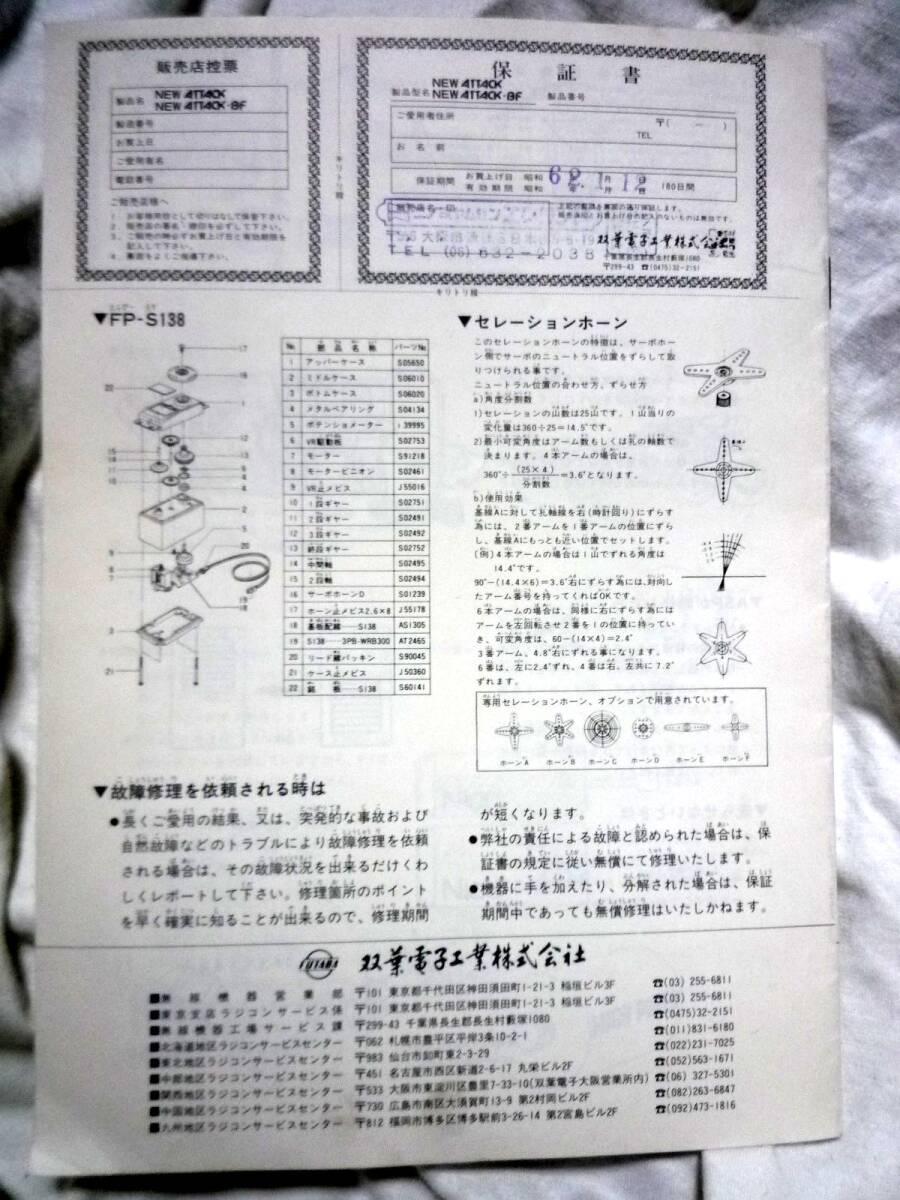 販売店控票
製品名 NEW ATTACK
NEW ATTACK・BF
製造番号
お買上日
ご愛用者名
電話番号
ご販売店様へ
キリトリ線
保証書
製品型名 NEW ATTACK
NEW ATTACK・BF 製品番号
ご愛用者住所 〒( — )
TEL
お名前
保証期間 お買上げ日 昭和 62 年 1 月 12 日
有効期限 昭和 年 月 日 180日間
販売店名・印
TEL (06) 632-2038
双葉電子工業株式会社
千葉県長生郡長生村藪塚1080
〒299-43 ☎(0475)32-2151
キリトリ線
▼FP-S138
No. 部品名称 パーツNo.
1 アッパーケース S05650
2 ミドルケース S06010
3 ボトムケース S06020
4 メタルベアリング S04134
5 ポテンショメーター I39995
6 VR駆動板 S02753
7 モーター S91218
8 モーターピニオン S02461
9 VR止メビス J55016
10 1段ギヤー S02751
11 2段ギヤー S02492
12 3段ギヤー S02491
13 終段ギヤー S02752
14 中間軸 S02495
15 2段軸 S02494
16 サーボホーンD S01239
17 ホーン止メビス2.6×8 J55178
18 基板配線……S138 AS1305
19 S138……3PB-WRB300 AT2465
20 リード線パッキン S90045
21 ケース止メビス J50360
22 銘板……S138 S60141
▼セレーションホーン
このセレーションホーンの特徴は、サーボホー
ン側でサーボのニュートラル位置をずらして取
りつけられる事です。
ニュートラル位置の合わせ方、ずらせ方
a)角度分割数
1)セレーションの山数は25山です。1山当りの
変化量は360÷25=14.5°です。
2)最小可変角度はアーム数もしくは孔の軸数で
決まります。4本アームの場合は、
360°÷(25×4)/分割数=3.6°となります。
b)使用効果
基線Aに対して孔軸線を右(時計回り)にずらす
為には、2番アームを1番アームの位置にずら
し、基線Aにもっとも近い位置でセットします。
(例)4本アームの場合は1山でずれる角度は
14.4°です。
90°−(14.4×6)=3.6°右にずらす為には、対向し
たアーム番号を持ってくればOKです。
6本アームの場合は、同様に右にずらす為には
アームを左回転させ2番を1の位置に持ってい
き、可変角度は、60−(14×4)=2.4°
3番アーム、4.8°右にずれる事になります。
6番は、左に2.4°ずれ、4番は右、左共に7.2°
ずれます。
専用セレーションホーン、オプションで用意されています。
ホーンA ホーンB ホーンC ホーンD ホーンE ホーンF
▼故障修理を依頼される時は
●長くご愛用の結果、又は、突発的な事故および
自然故障などのトラブルにより故障修理を依頼
される場合は、その故障状況を出来るだけくわ
しくレポートして下さい。修理箇所のポイント
を早く確実に知ることが出来るので、修理期間
が短くなります。
●弊社の責任による故障と認められた場合は、保
証書の規定に従い無償にて修理いたします。
●機器に手を加えたり、分解された場合は、保証
期間中であっても無償修理はいたしかねます。
FUTABA 双葉電子工業株式会社
■無線機器営業部 〒101 東京都千代田区神田須田町1-21-3 稲垣ビル3F ☎(03) 255-6811
■東京支店ラジコンサービス係 〒101 東京都千代田区神田須田町1-21-3 稲垣ビル3F ☎(03) 255-6811
■無線機器工場サービス課 〒299-43 千葉県長生郡長生村藪塚1080 ☎(0475)32-2151
■北海道地区ラジコンサービスセンター 〒062 札幌市豊平区平岸3条10-2-1 ☎(011)831-6180
■東北地区ラジコンサービスセンター 〒983 仙台市卸町東2-3-29 ☎(022)231-7025
■中部地区ラジコンサービスセンター 〒451 名古屋市西区新道2-6-17 丸栄ビル2F ☎(052)563-1671
■関西地区ラジコンサービスセンター 〒533 大阪市東淀川区豊里7-33-10(双葉電子大阪営業所内) ☎(06) 327-5301
■中国地区ラジコンサービスセンター 〒730 広島市南区大須賀町13-9 第2村岡ビル2F ☎(082)263-6847
■九州地区ラジコンサービスセンター 〒812 福岡市博多区博多駅前3-26-14 第2宮島ビル2F ☎(092)473-1816